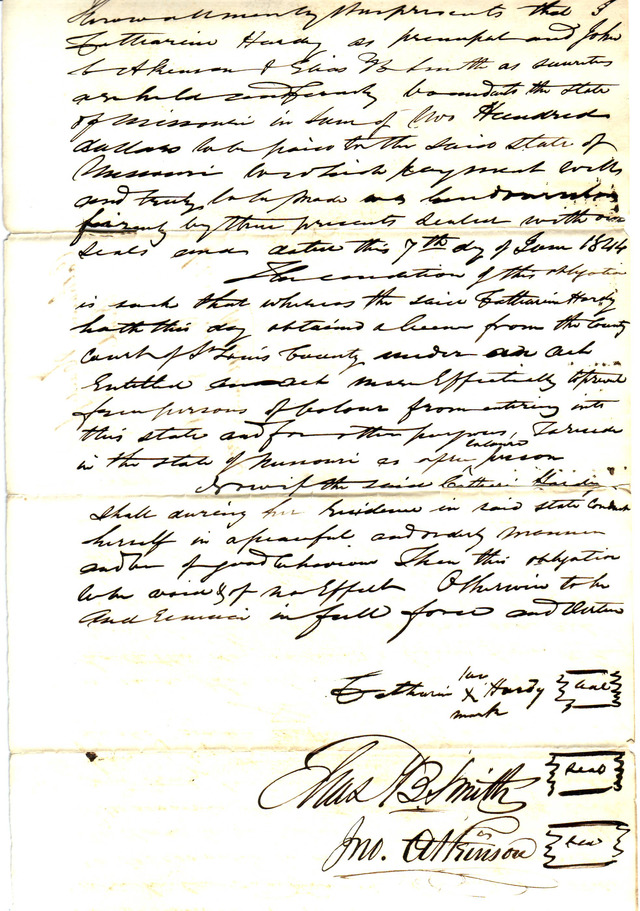 Know all men by these presents that I
Catharine Hardy as principal and John
C Atkinson & Elias B Smith as securities
are held and firmly bound unto the state
of Missouri in sum of Two Hundred
dollars to be paid to the said state of
Missouri to which payment well
and truly to be made we bind ourselves
firmly by these presents sealed with our
seals and dated this 7th day of June 1844
The condition of this obligation
is such that whereas the said Catharine Hardy
hath this day obtained a license from the County
Court of St Louis County under an act
Entitled an act more Effectually to prevent
free persons of Colour from entering into
this state and for other purposes, To reside
in the state of Missouri as a free colored person
Now if the said Catharine Hardy
shall during her Residence in said state Conduct
herself in a peaceful and orderly manner
and be of good behaviour Then this obligation
to be void & of no Effect Otherwise to be
and Remain in full force and Virtue
Catharine her X mark Hardy seal
Elias B. Smith seal
Jno. C Atkinson seal